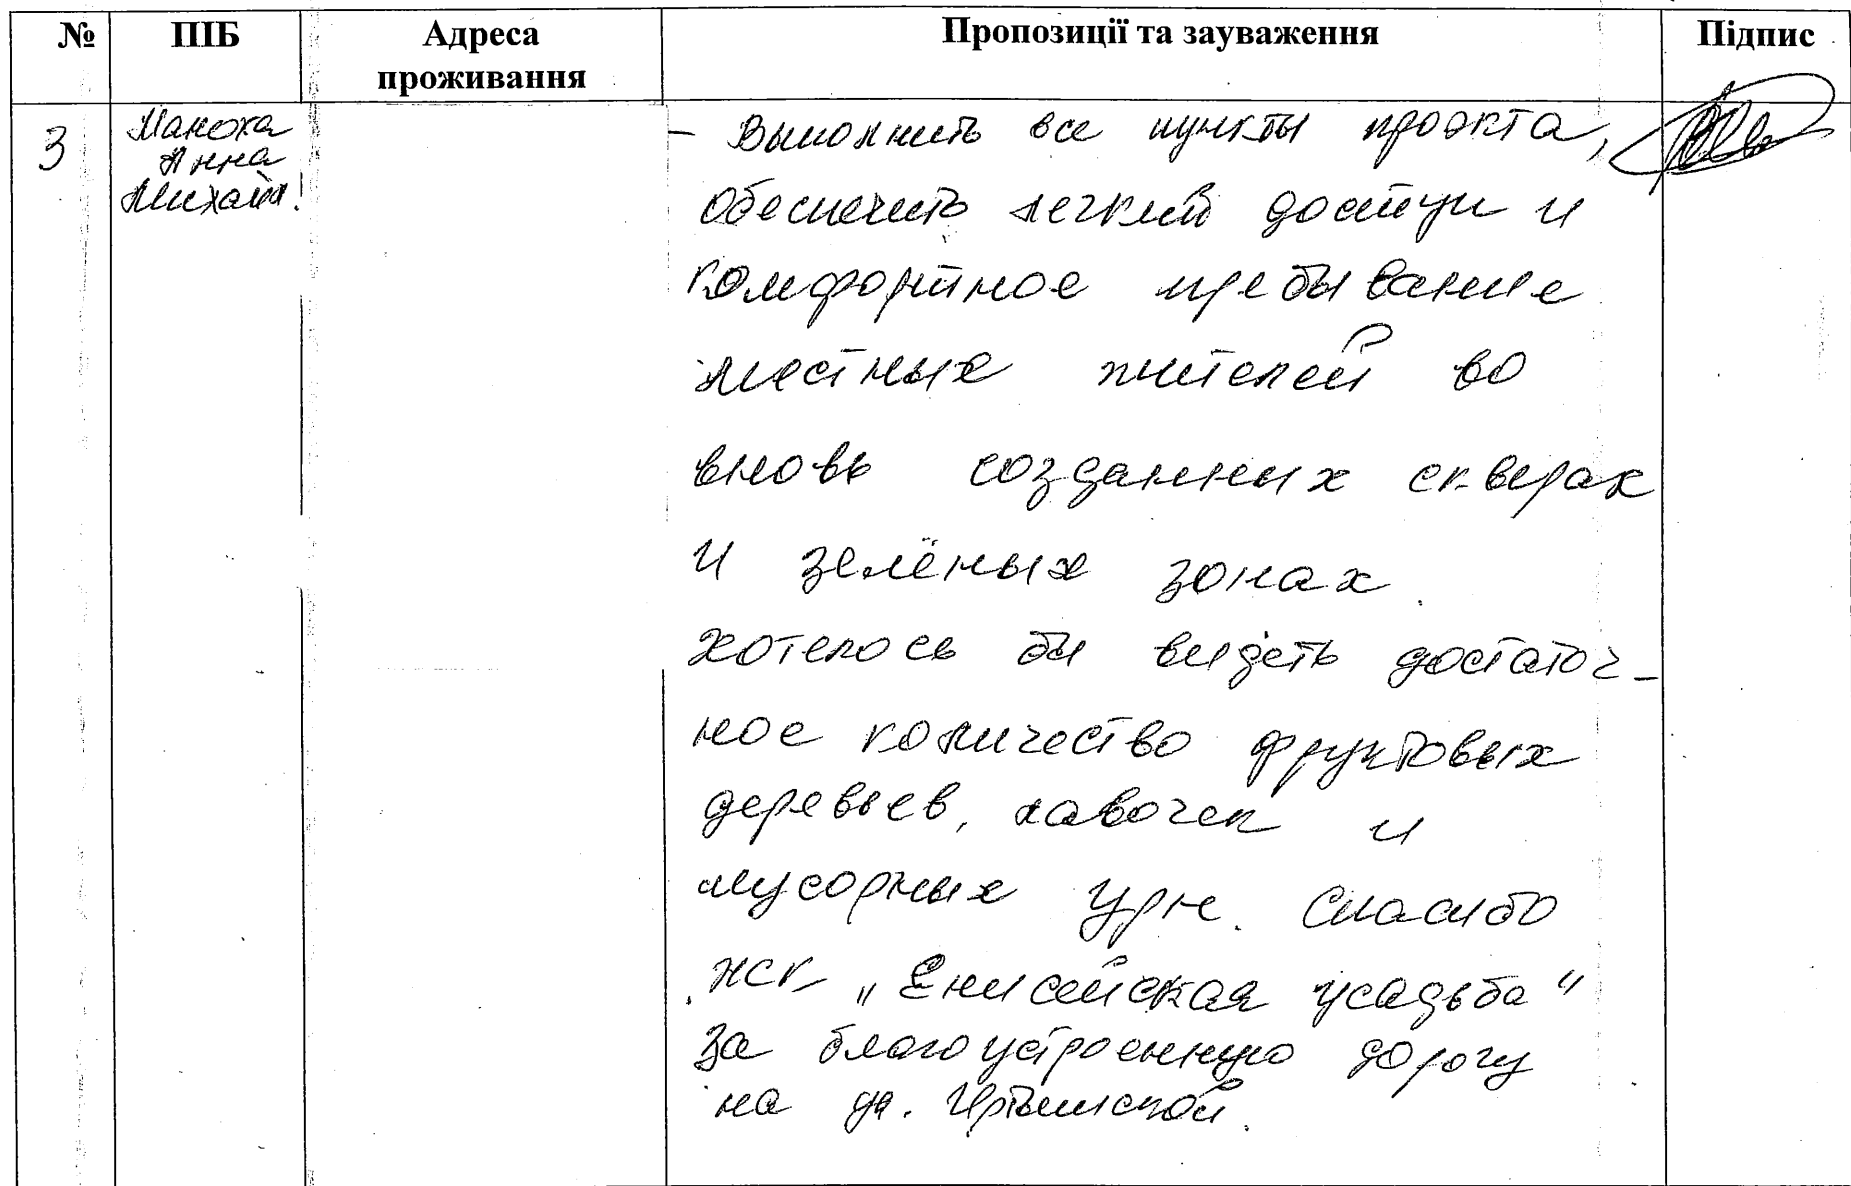 № ПІБ Адреса проживання Пропозиції та зауваження Підпис
3 Маноха
Анна
Михайл.
- Выполнить все пункты проэкта,
обеспечить легкий доступ и
комфортное пребывание
местных жителей во
вновь созданных скверах
и зелёных зонах.
хотелось бы видеть достаточ-
ное количество фруктовых
деревьев, лавочек и
мусорных урн. Спасибо
жск „Енисейская усадьба"
За благоустроенную дорогу
на ул. Иртышской.